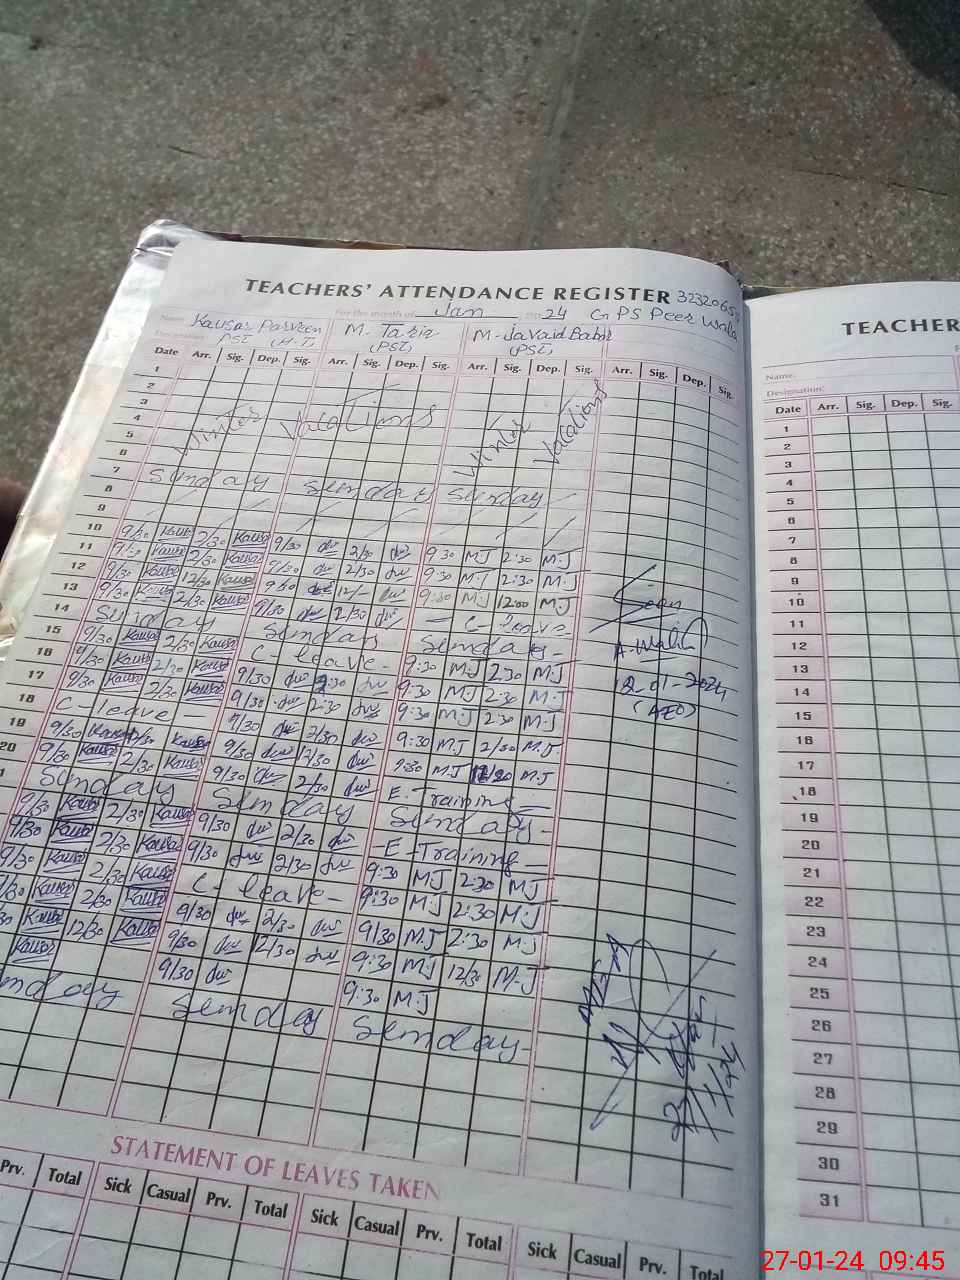 TEACHERS' ATTENDANCE REGISTER 3232065
For the month of Jan 2024 GPS Peer Wala
Name Kausar Parveen M-Tariq M-Javaid Babar
Designation PST (H-T) (PST) (PST)
Date Arr. Sig. Dep. Sig. Arr. Sig. Dep. Sig. Arr. Sig. Dep. Sig. Arr. Sig. Dep. Sig.
1
2
3
4 Winter Vacations Winter Vacations
5
6
7 Sunday Sunday Sunday
8
9
10 9/30 Kausar 2/30 Kausar 9/30 2/30 9:30 M.J 2:30 M.J
11 9/30 Kausar 2/30 Kausar 9/30 2/30 9:30 M.J 2:30 M.J
12 9/30 Kausar 12/30 Kausar 9/30 12/- 9:30 M.J 12:00 M.J
13 9/30 Kausar 2/30 Kausar 9/30 2/30 - C - leave -
14 Sunday Sunday Sunday -
15 9/30 Kausar 2/30 Kausar C - leave - 9:30 M.J 2:30 M.J
16 9/30 Kausar 2/30 Kausar 9/30 2:30 9:30 M.J 2:30 M.J
17 9/30 Kausar 2/30 Kausar 9/30 2:30 9:30 M.J 2:30 M.J
18 C - leave - 9/30 2/30 9:30 M.J 2/30 M.J
19 9/30 Kausar 12/30 Kausar 9/30 12/30 9:30 M.J 12/30 M.J
20 9/30 Kausar 2/30 Kausar 9/30 2/30 E-Training -
Sunday Sunday Sunday -
9/30 Kausar 2/30 Kausar 9/30 2/30 - E-Training -
9/30 Kausar 2/30 Kausar 9/30 2/30 9:30 M.J 2:30 M.J
9/30 Kausar 2/30 Kausar C - leave - 9:30 M.J 2:30 M.J
9/30 Kausar 2/30 Kausar 9/30 2/30 9/30 M.J 2:30 M.J
Kausar 12/30 Kausar 9/30 12/30 9:30 M.J 12/30 M.J
Kausar 9/30 9:30 M.J
Sunday Sunday Sunday -
12-01-2024
(AEO)
27/1/24
STATEMENT OF LEAVES TAKEN
Prv. Total Sick Casual Prv. Total Sick Casual Prv. Total Sick Casual Prv. Total
TEACHER
Name:
Designation:
Date Arr. Sig. Dep. Sig.
1
2
3
4
5
6
7
8
9
10
11
12
13
14
15
16
17
18
19
20
21
22
23
24
25
26
27
28
29
30
31
27-01-24 09:45